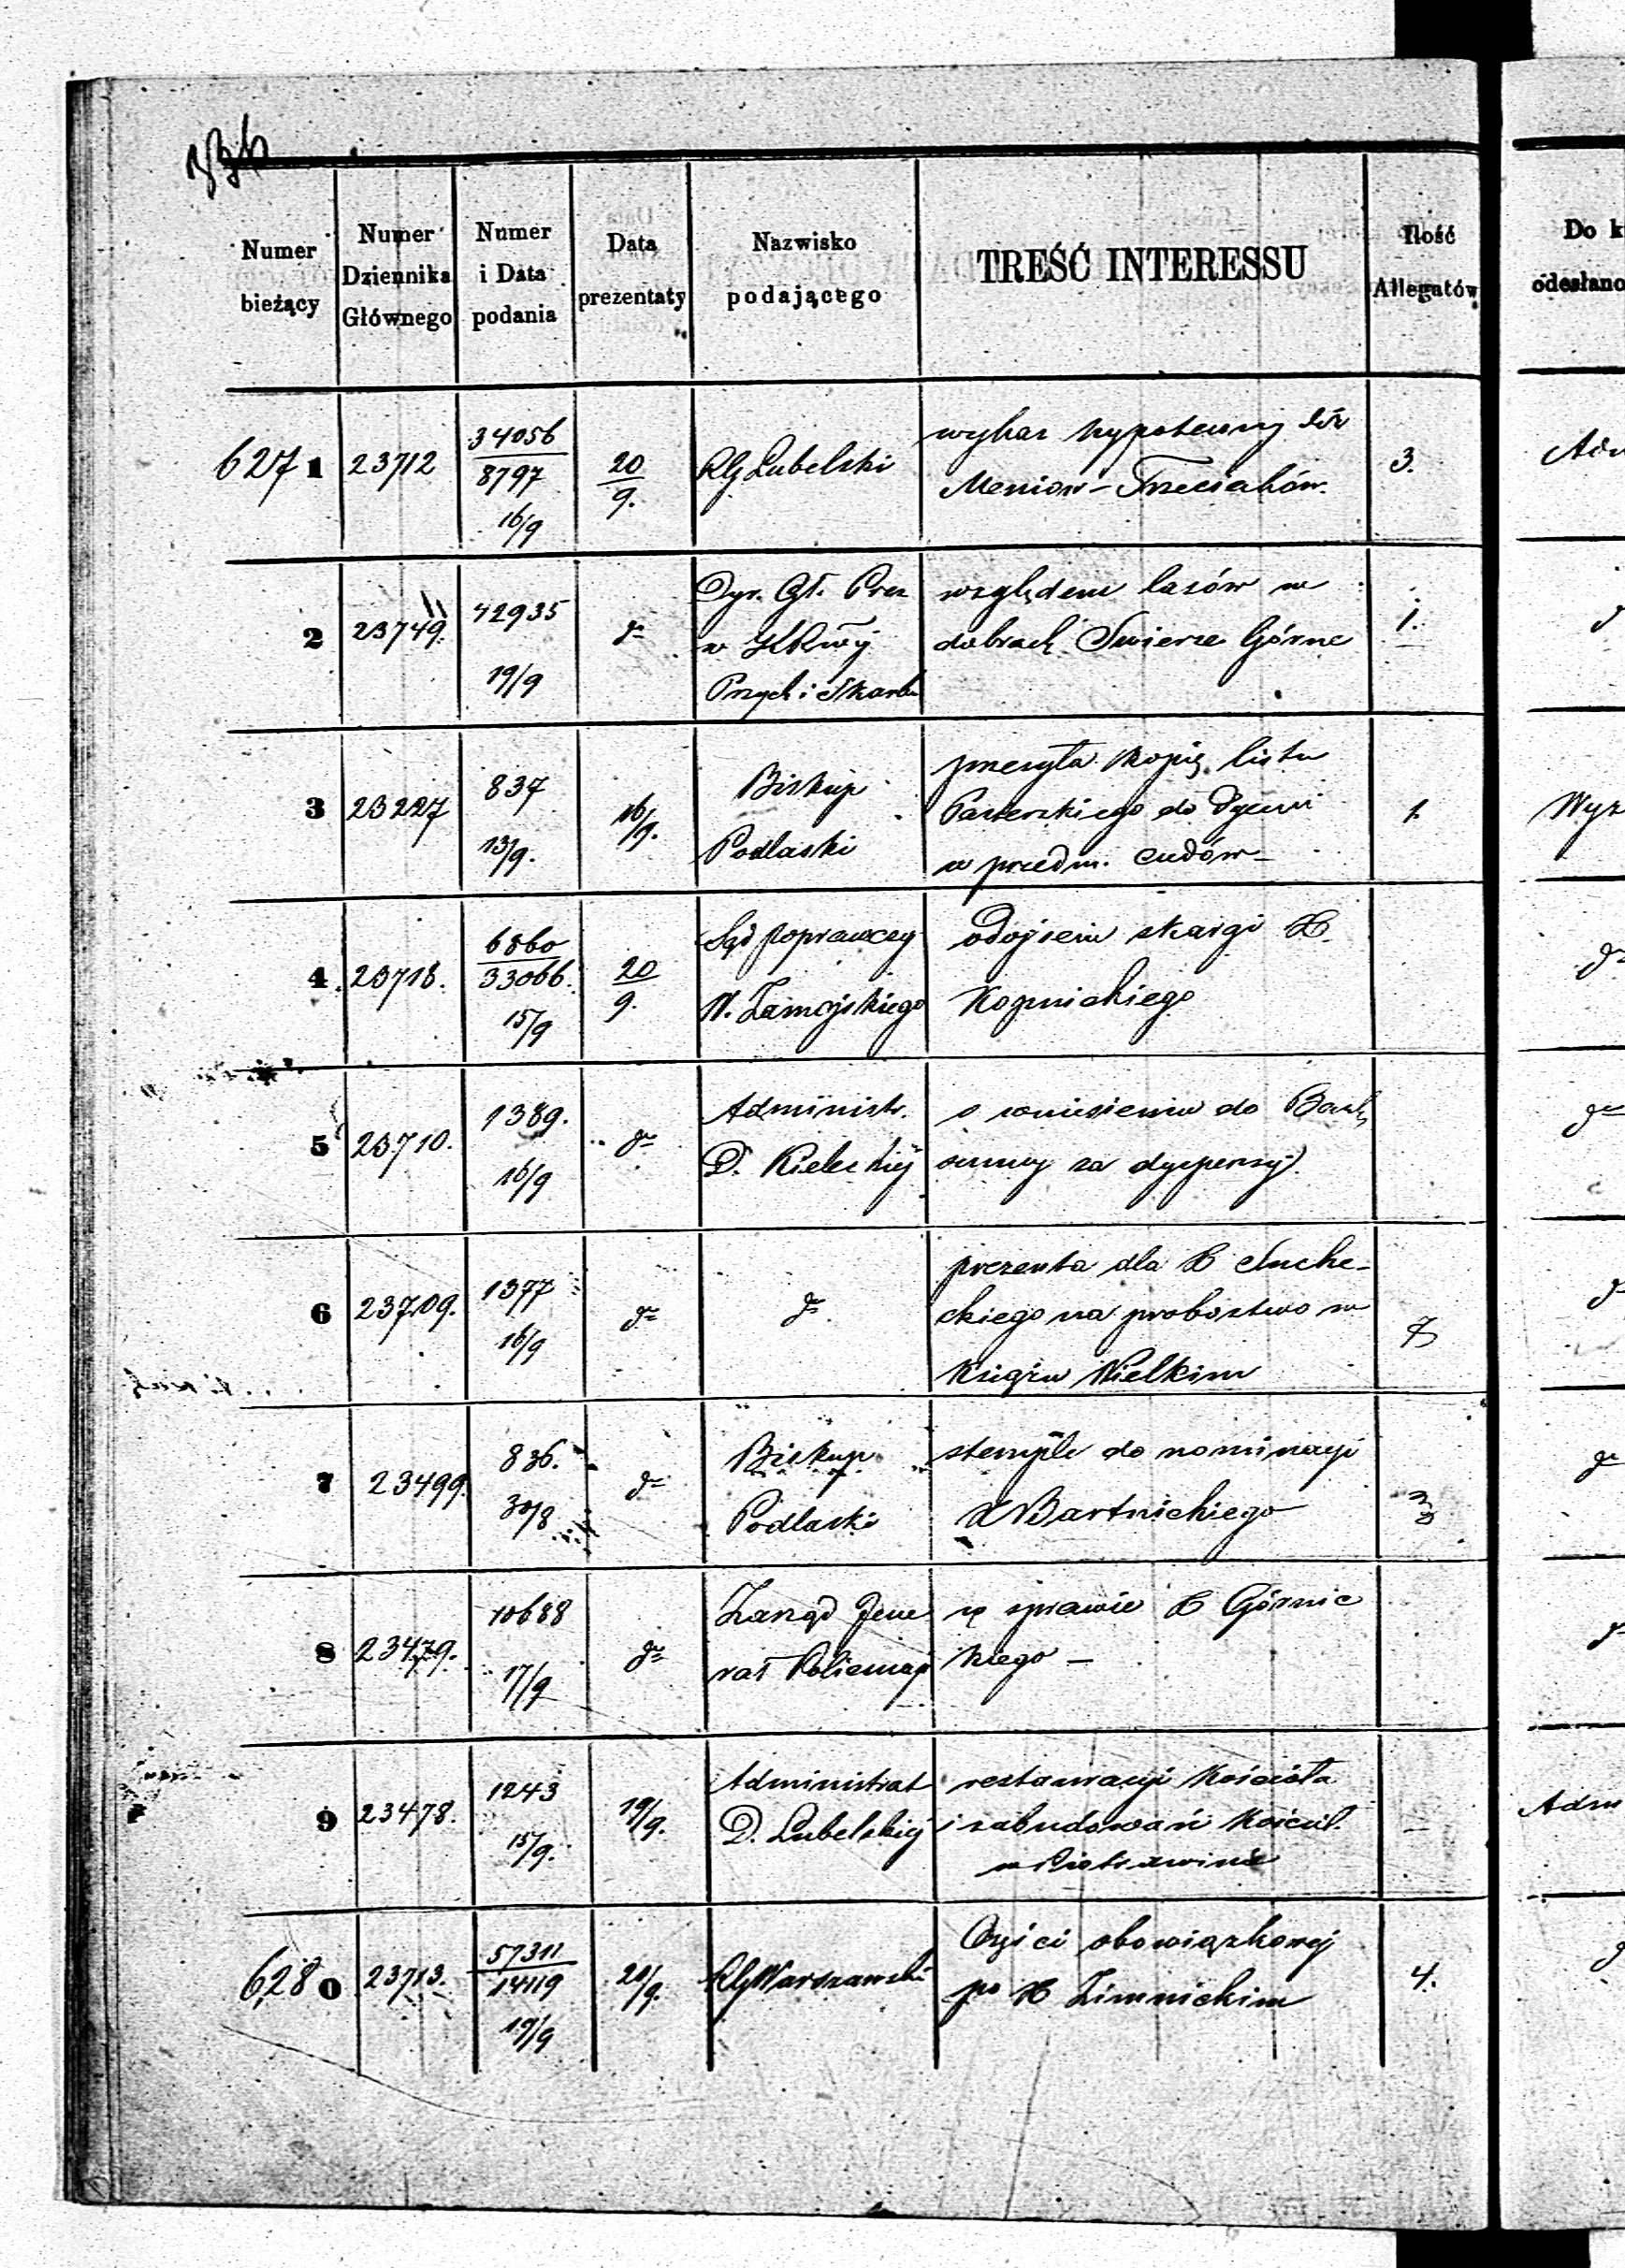 Numer bieżący
Numer Dziennika Głównego
Numer i Data podania
Data prezentaty
Nazwisko podającego
TREŚĆ INTERESSU
Ilość Allegatów
Do k
odesłano
6271
23712
34056
8797
16/9
20
9.
RG Lubelski
wykaz hypoteczny dóbr
Meniow - Trzeciaków.
3.
2
23749.
42935
19/9
dº
Dyr. Gł. Prez
w KRwéj
Przych i Skarbu
względem lasów w
dobrach Swierze Górne
1.
3
23227
837
13/9.
16/9.
Biskup
Podlaski
przesyła kopię listu
Pasterskiego do Dyecezi
w przedm. cudów -
1.
Wyz
4.
23718.
6860
33066.
15/9
20
9.
Sąd poprawczy
W. Zamojskiego
skargi X.
5
23710.
1389.
16/9
dº
Administr.
D. Kieleckiéj
o wniesieniu do Banku
summy za dyspensy
6
23709.
1377
16/9
dº
dº
prezenta dla X Suche-
ckiego na probostwo w
Książu Wielkim
7
7
23499.
836.
30/8
dº
Biskup
Podlaski
stemple do nominacyi
X Bartnickiego
3
8
23479.
10688
17/9
dº
Zarząd Jene
rał Policmaj
w sprawie X Górnic
kiego -
9
23478.
1243
15/9.
19/9.
Administrat
D. Lubelskiéj
restauracyi Kościoła
i zabudowań Kościel.
w Piotrawinie
Adm
6280
23713.
57311
14119
19/9
20/9.
RG Warszawski
Części obowiązkowéj
po X Zimnickim
4.